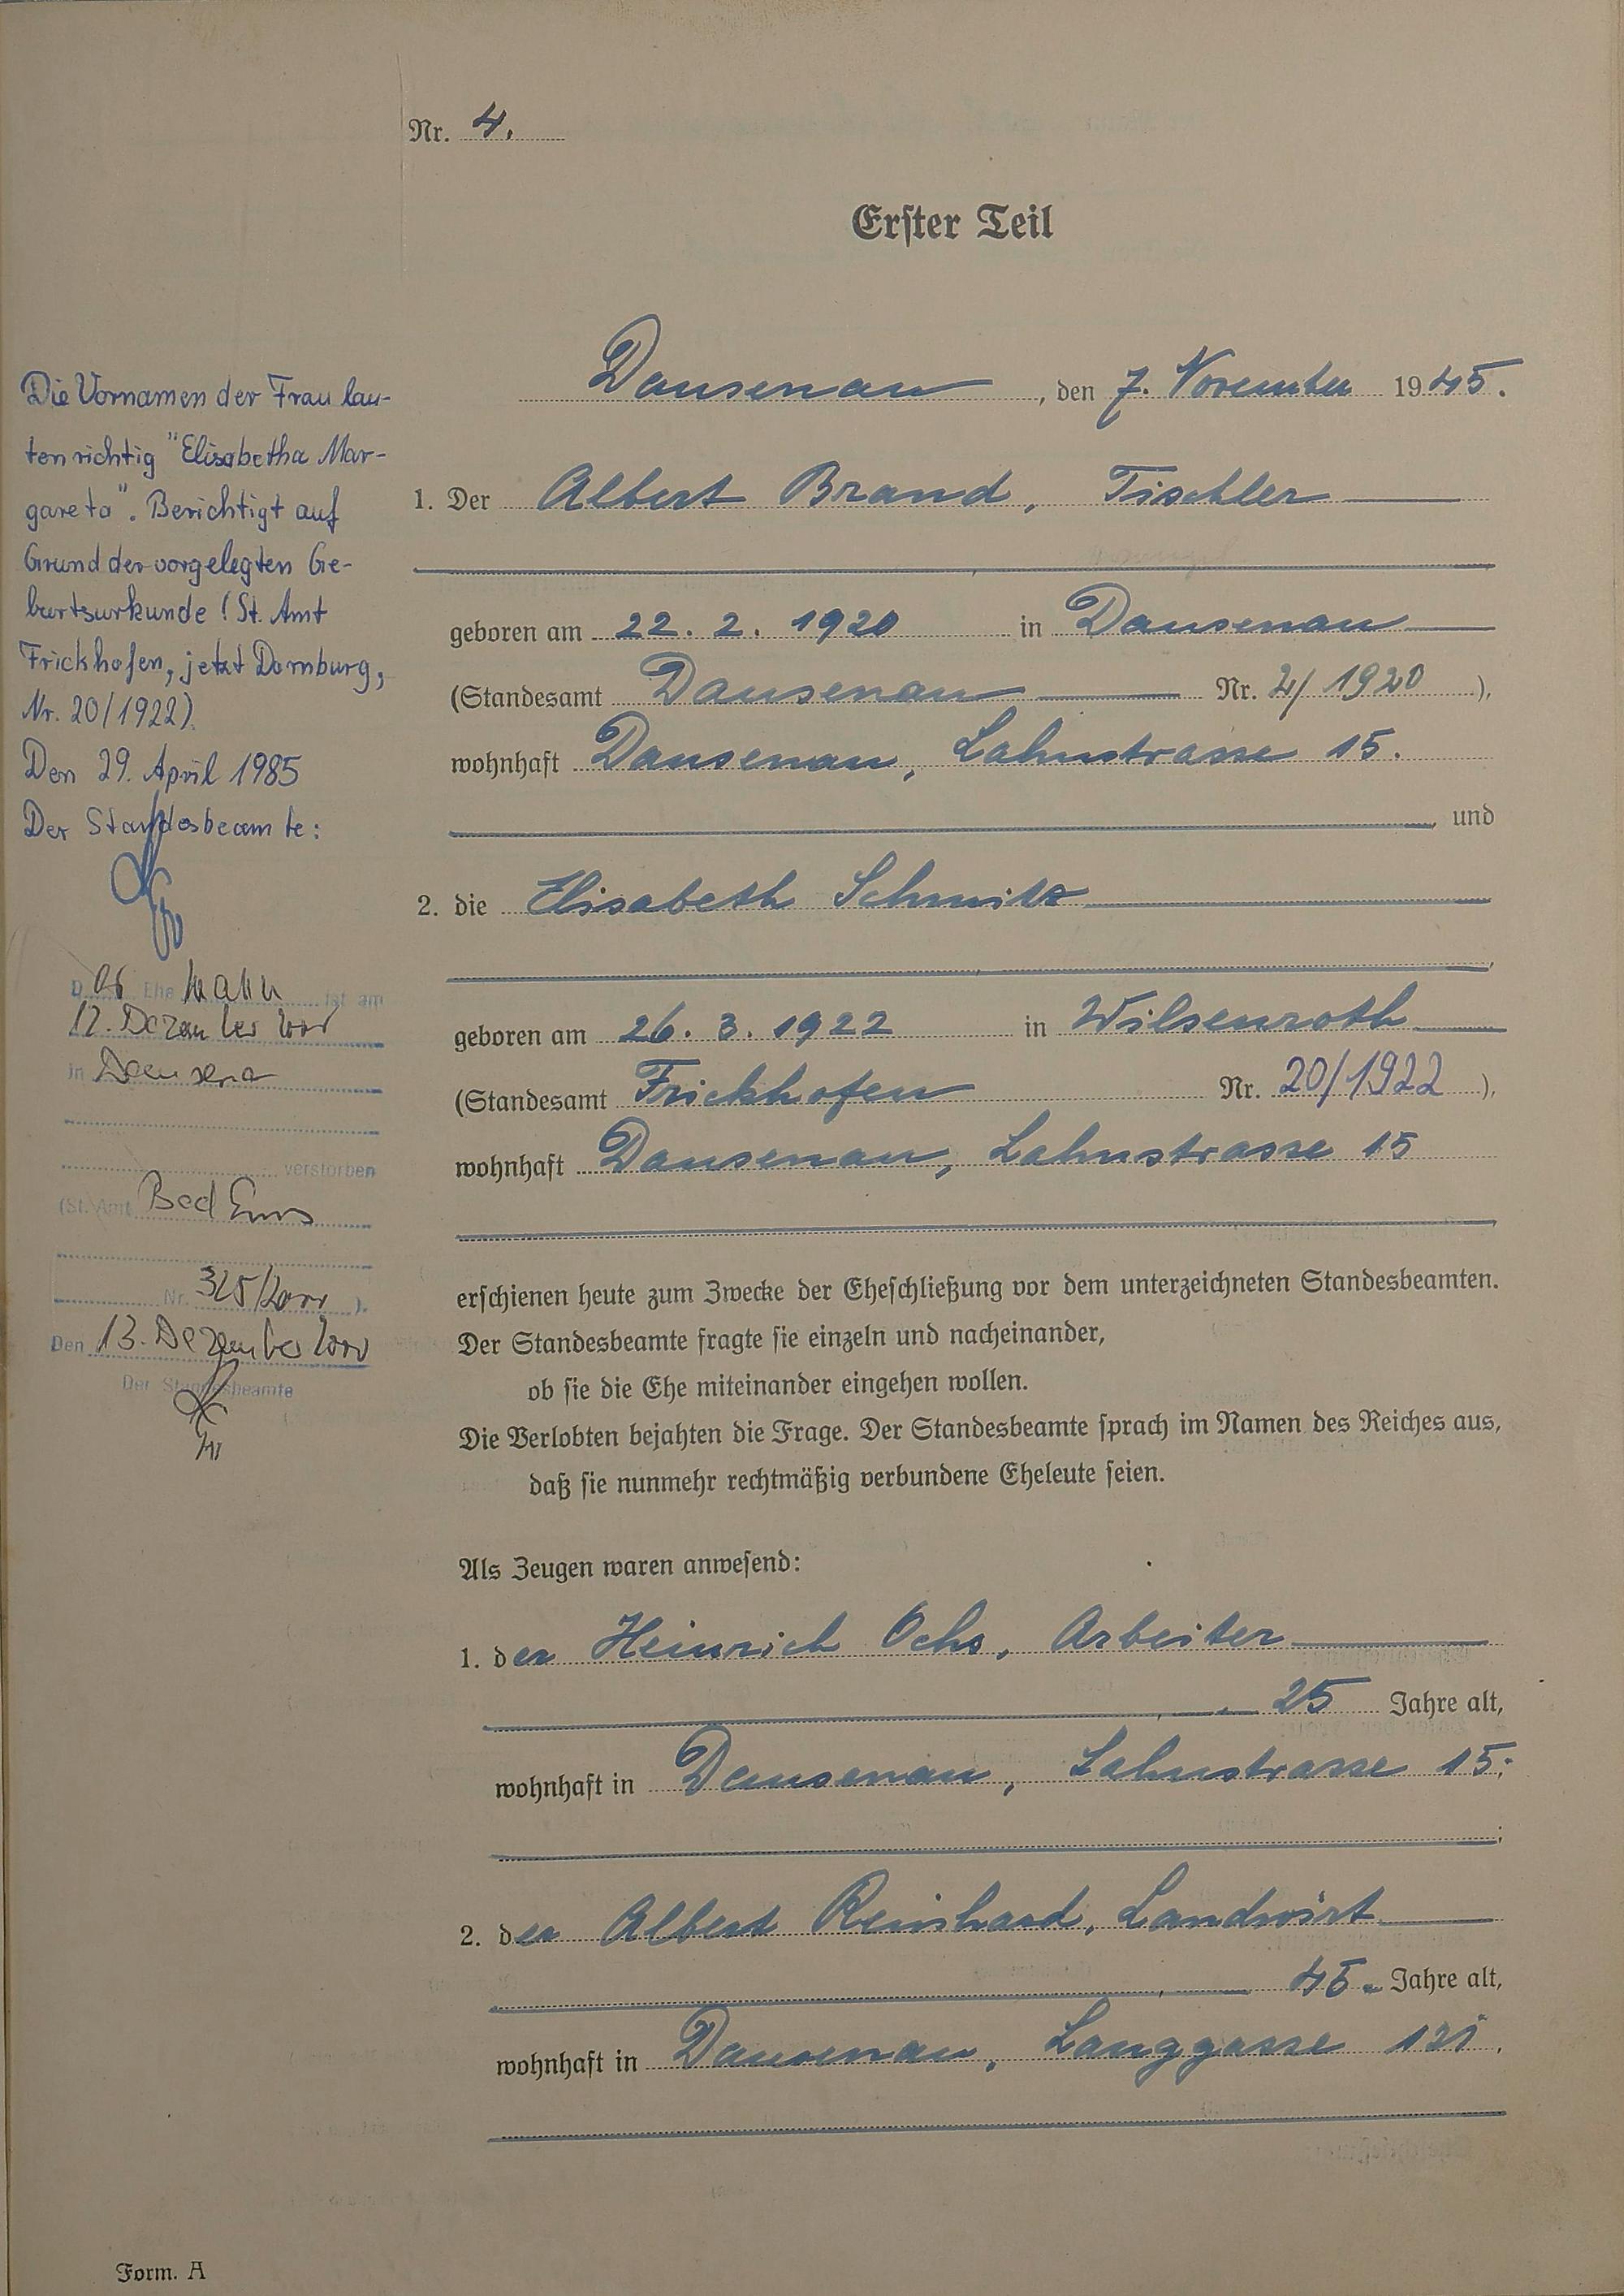 Nr. 4.
Erster Teil
Dausenau, den 7. November 1945.
1. Der Albert Brand, Tischler
geboren am 22. 2. 1920 in Dausenau
(Standesamt Dausenau Nr. 2/1920),
wohnhaft Dausenau, Lahnstrasse 15.
, und
2. die Elisabeth Schmitz
geboren am 26. 3. 1922 in Wilsenroth
(Standesamt Frickhofen Nr. 20/1922),
wohnhaft Dausenau, Lahnstrasse 15
erschienen heute zum Zwecke der Eheschließung vor dem unterzeichneten Standesbeamten.
Der Standesbeamte fragte sie einzeln und nacheinander,
ob sie die Ehe miteinander eingehen wollen.
Die Verlobten bejahten die Frage. Der Standesbeamte sprach im Namen des Reiches aus,
daß sie nunmehr rechtmäßig verbundene Eheleute seien.
Als Zeugen waren anwesend:
1. der Heinrich Ochs, Arbeiter
, 25 Jahre alt,
wohnhaft in Dausenau, Lahnstrasse 15;
2. der Albert Reinhard, Landwirt
, 45 Jahre alt,
wohnhaft in Dausenau, Langgasse 131.
Die Vornamen der Frau lau-
ten richtig "Elisabetha Mar-
gareta". Berichtigt auf
Grund der vorgelegten Ge-
burtsurkunde (St. Amt
Frickhofen, jetzt Dornburg,
Nr. 20/1922).
Den 29. April 1985
Der Standesbeamte:
Der Ehemann ist am
12. Dezember
in Dausenau
verstorben
(St. Amt Bad Ems
Nr. 325/2000).
Den 13. Dezember 2000
Der Standesbeamte
Form. A